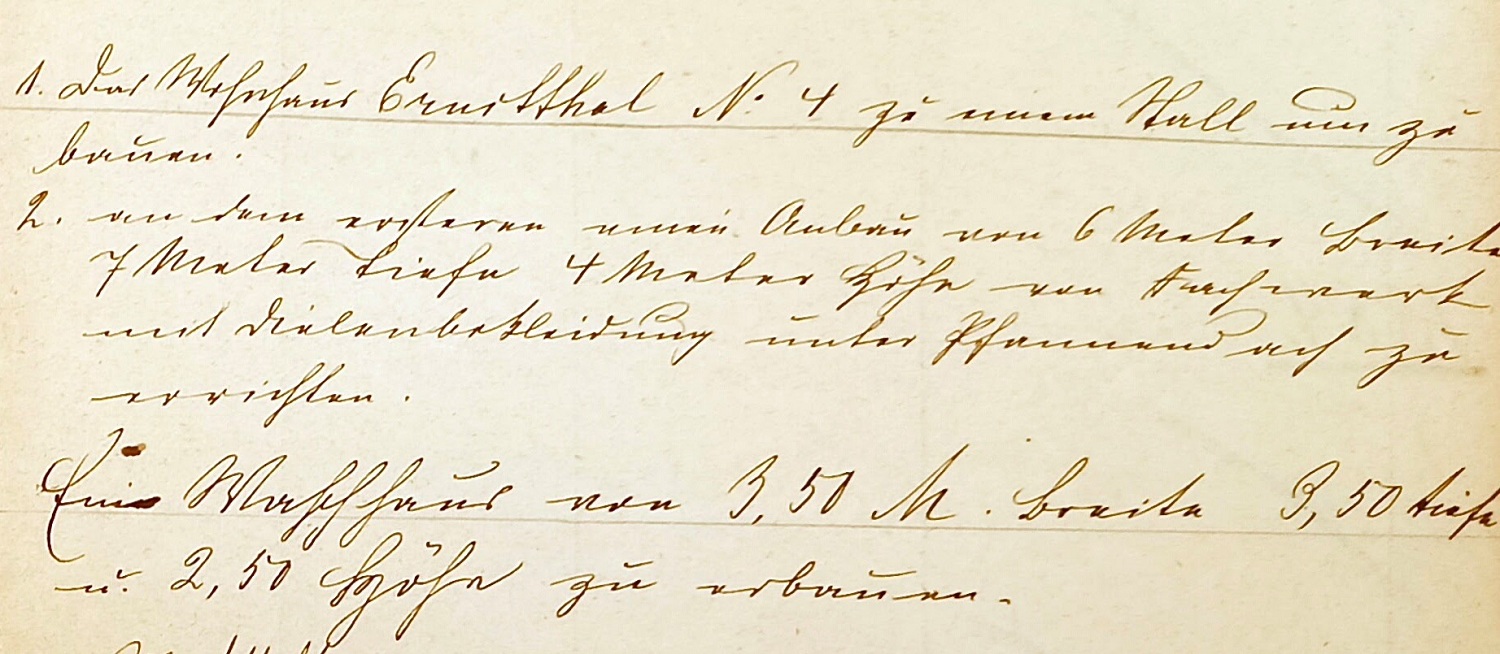 1. Das Wohnhaus Ernstthal No. 4 zu einem Stall um zu
bauen.
2. an dem ersteren einen Anbau von 6 Meter Breite
7 Meter Tiefe 4 Meter Höhe von Fachwerk
mit Dielenbekleidung unter Pfannendach zu
errichten.
Ein Waschhaus von 3,50 M. Breite 3,50 tiefe
u. 2,50 Höhe zu erbauen.